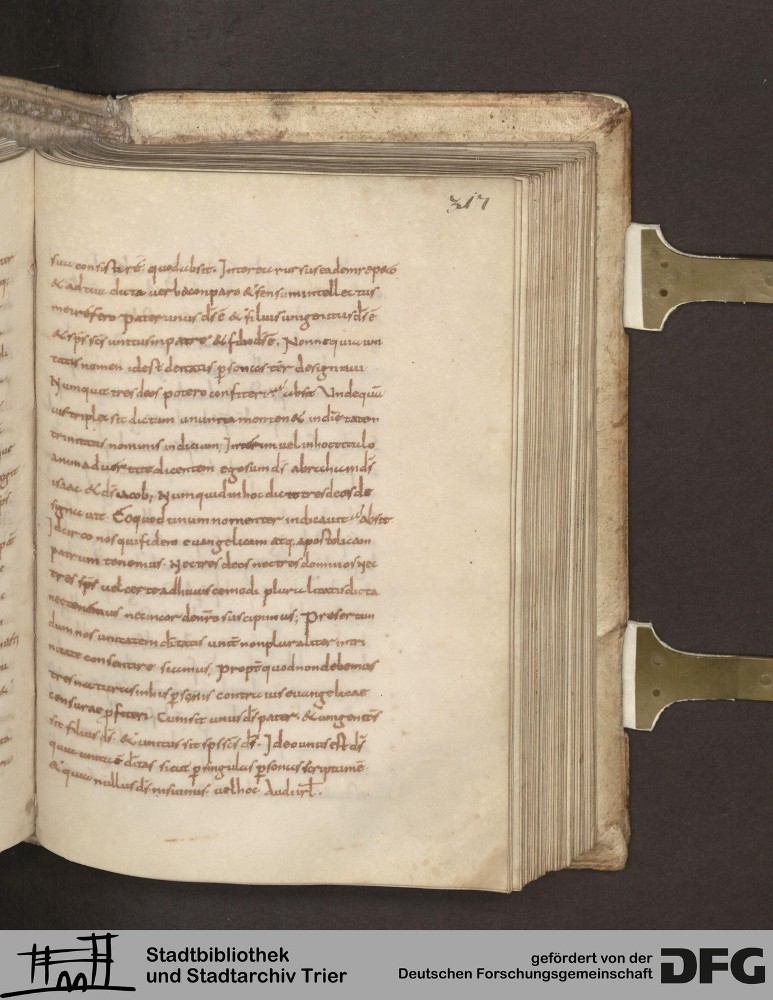 317
sua consisteré quod absit. Interea rursus eadem repeto
& ad tua dicta verba conparo & sensum intellectus
mei refero Pater unus d̄s ē & filius unigenitus d̄s ē
& sp̄s sc̄s unitus in patre & filio d̄s ē, Nonne qui una
tatis nomen idest deitatis personas ter designaui
Numquit tres deos potero confiteri absit Unde qui
triplex sit dictum una tamen & indi&atem
trinitatis nominis indicium, Interim vel in hoc titulo
animaduertite dicentem ego sum d̄s abraham d̄s
isaac & d̄s iacob, Numquid in hoc dicto tres deos de
signauit Eo quod unum nomen ter indicauit absit
Idcirco nos qui fidem euangelicam atq, apostolicam
patrum tenemus. Nec tres deos nec tres dominos Nec
tres sp̄s uel certe adhuiuscemodi pluralitatis dicta
nec in corde n̄ro suscipimus, Presertim
dum nos unitatem non pluraliter in tri
nitate consentire sciamus, quod non debemus
tres naturas in his personis contra ius euangelicae
censurae p̄fiteri. Cum sit unus d̄s pater, & unigenitus
sit filius d̄s. & unitus sit sp̄s sc̄s d̄s. Ideo unus est d̄s
quia una ē sicut p singulas personas
& quia nullus d̄s nisi unus. uel hoc Audi
Stadtbibliothek
und Stadtarchiv Trier
gefördert von der
Deutschen Forschungsgemeinschaft
DFG